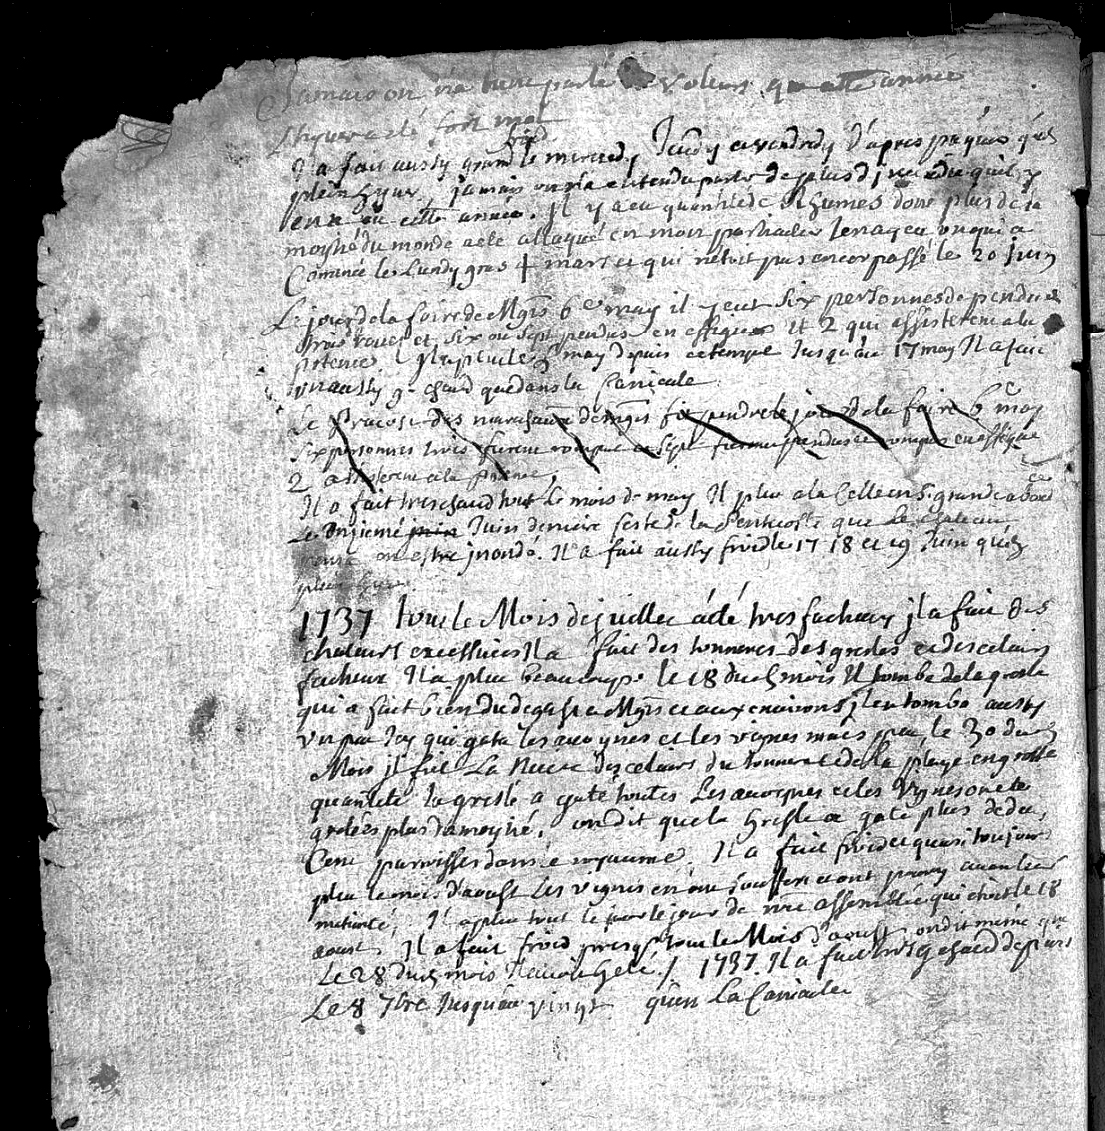 Jamais on n'a tant parlé de voleurs que cette année
L'hyver a été fort mol
froid
Il a fait aussy grand le mercredy Jeudy et vendredy d'apres paques qu'en
plein hyver, jamais on n'a entendu parler de plus d' qu'il y
en a eu cette année. Il y a eu quantité de Rhumes dont plus de la
moytié du monde a eté attaqué en mon particulier Jen ay eu un qui a
Comencé le Lundy gras 4 mars et qui n'étoit pas encor passé le 20 Juin
Le jour de la foire de Mgis 6e may il y eut six personnes de pendues
trois rouez et six ou sept pendus en effigies et 2 qui assisterent a la
potence. Il a plu le 3 may depuis ce temps Jusqu'au 17 may Il a fait
un aussy gd chaud que dans la Canicule
Le Procest des marechaux de mgis fit pendre le jour de la foire 6e may
Six personnes trois furent rompue et sept furent pendus et rompus en effigie
2 assisterent a la potence
Il a fait tres chaud tout Le mois de may Il plu a la Celle en Si grande abond ce
Le onzieme juin Juin derniere feste de la Pentecoste que Le chateau
pensa en estre jnondé. Il a fait aussy froid le 17 18 et 19 Juin qu'en
plein hyver
1737 tout le Mois de juillet a été tres facheux jl a fait des
chaleurs excessives Il a fait des tonneres des greles et des eclairs
facheux Il a plu beaucoup. le 18 dud mois Il tomba de la grele
qui a fait bien du degast a Mgis et aux environs jl en tomba aussy
un peu Icy qui gata les avoynes et les vignes mais peu, le 30 dud
Mois jl fit La Nuit des eclairs du tonnere et de la pluye en grosse
quantité la gresle a gaté toutes Les avoynes et les Vignes ont été
grelées plus d'a moytié, on dit que la Gresle a gaté plus de deux
Cent parroisses dans le royaume. Il a fait froid et quasi toujours
plu le mois d'aoust Les vignes en ont souffert et ont pourry avant leur
maturité, Il a plu tout le jour le jour de nre assemblée qui etoit le 18
aoust, Il a fait froid presq tout le Mois d'aoust on dit meme que
Le 28 dud mois Il avoit Gelé / 1737 Il a fait tres gd chaud depuis
Le 8 7bre Jusqu'au vingt qu'en La Canicule